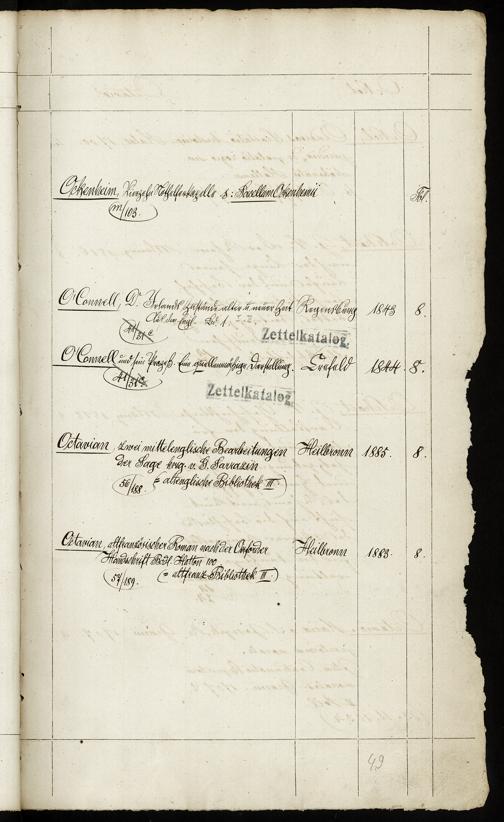 Ockenheim, Vierzehn Nothhelferkapelle s: Sacellum Ockenhemii Fol.
m/103.
O'Connell, D. Irlands Zustände alter u. neuer Zeit Regensburg 1843 8.
Aus dem Engl. Bd. 1.
Zettelkatalog.
O'Connell und sein Prozeß. Eine quellenmäßige Darstellung. Crefeld 1844. 8.
Zettelkatalog.
Octavian, zwei mittelenglische Bearbeitungen Heilbronn 1885. 8.
der Sage hrsg. v. G. Sarrazin
56/188. (= altenglische Bibliothek III.)
Octavian, altfranzösischer Roman nach der Oxforder Heilbronn 1883. 8.
Handschrift Bodl. Hatton 100
57/189. (= altfranz. Bibliothek III.)
49